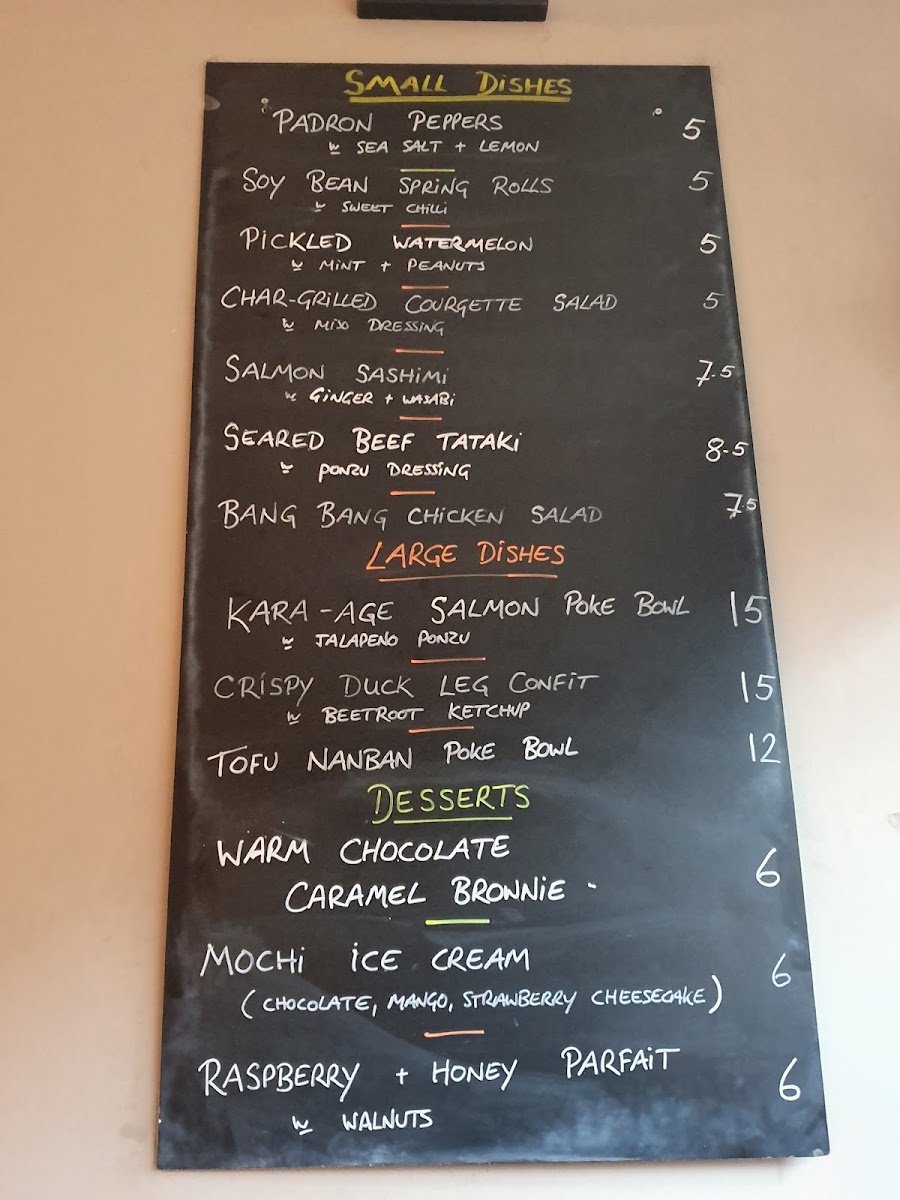 SMALL DISHES
PADRON PEPPERS 5
w SEA SALT + LEMON
SOY BEAN SPRING ROLLS 5
w SWEET CHILLI
PICKLED WATERMELON 5
w MINT + PEANUTS
CHAR-GRILLED COURGETTE SALAD 5
w MISO DRESSING
SALMON SASHIMI 7.5
w GINGER + WASABI
SEARED BEEF TATAKI 8.5
w PONZU DRESSING
BANG BANG CHICKEN SALAD 7.5
LARGE DISHES
KARA-AGE SALMON POKE BOWL 15
w JALAPENO PONZU
CRISPY DUCK LEG CONFIT 15
w BEETROOT KETCHUP
TOFU NANBAN POKE BOWL 12
DESSERTS
WARM CHOCOLATE
CARAMEL BRONNIE 6
MOCHI ICE CREAM 6
(CHOCOLATE, MANGO, STRAWBERRY CHEESECAKE)
RASPBERRY + HONEY PARFAIT 6
w WALNUTS